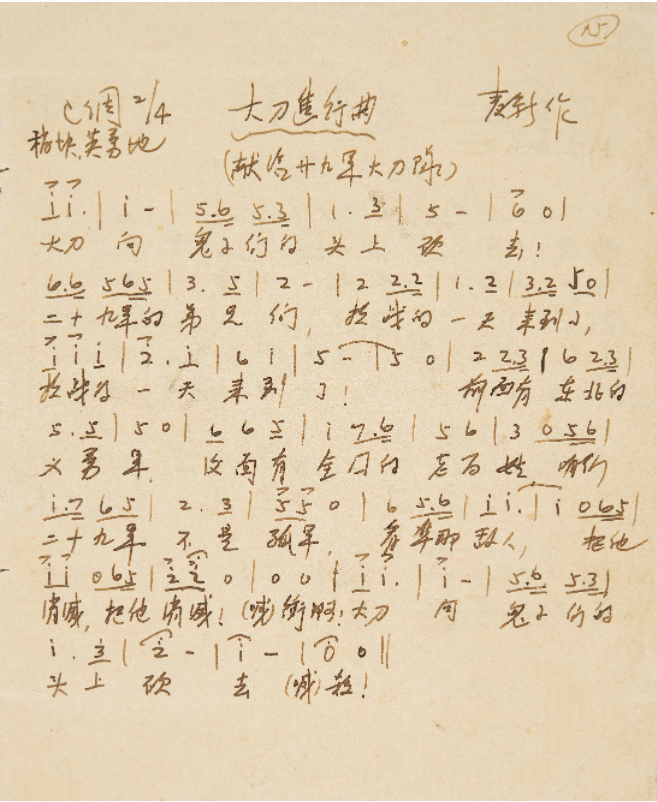 15
C调 2/4 大刀进行曲 麦新作
稍快、英勇地
(献给廿九军大刀队)
i i. | i - | 5.6 5.3 | 1. 3 | 5 - | 6 0 |
大刀 向 鬼子们的 头上 砍 去!
6.6 565 | 3. 5 | 2 - | 2 2.2 | 1. 2 | 3.2 50 |
二十九军的弟兄们, 抗战的一天来到了,
i i i | 2. i | 6 i | 5 - | 5 0 | 2 2.3 | 6 2.3 |
抗战的一天来到了! 前面有东北的
5. 5 | 5 0 | 6 6 5 | i 7.6 | 5 6 | 3 056 |
义勇军, 后面有全国的老百姓, 咱们
i.7 65 | 2. 3 | 55 0 | 6 5.6 | i i. | i 065 |
二十九军不是孤军, 看准那敌人, 把他
i i 065 | 2 2 0 | 0 0 | i i. | i - | 5.6 5.3 |
消灭, 把他消灭! (喊)冲啊! 大刀 向 鬼子们的
i. 3 | 2 - | i - | i 0 ||
头上 砍 去 (喊)杀!